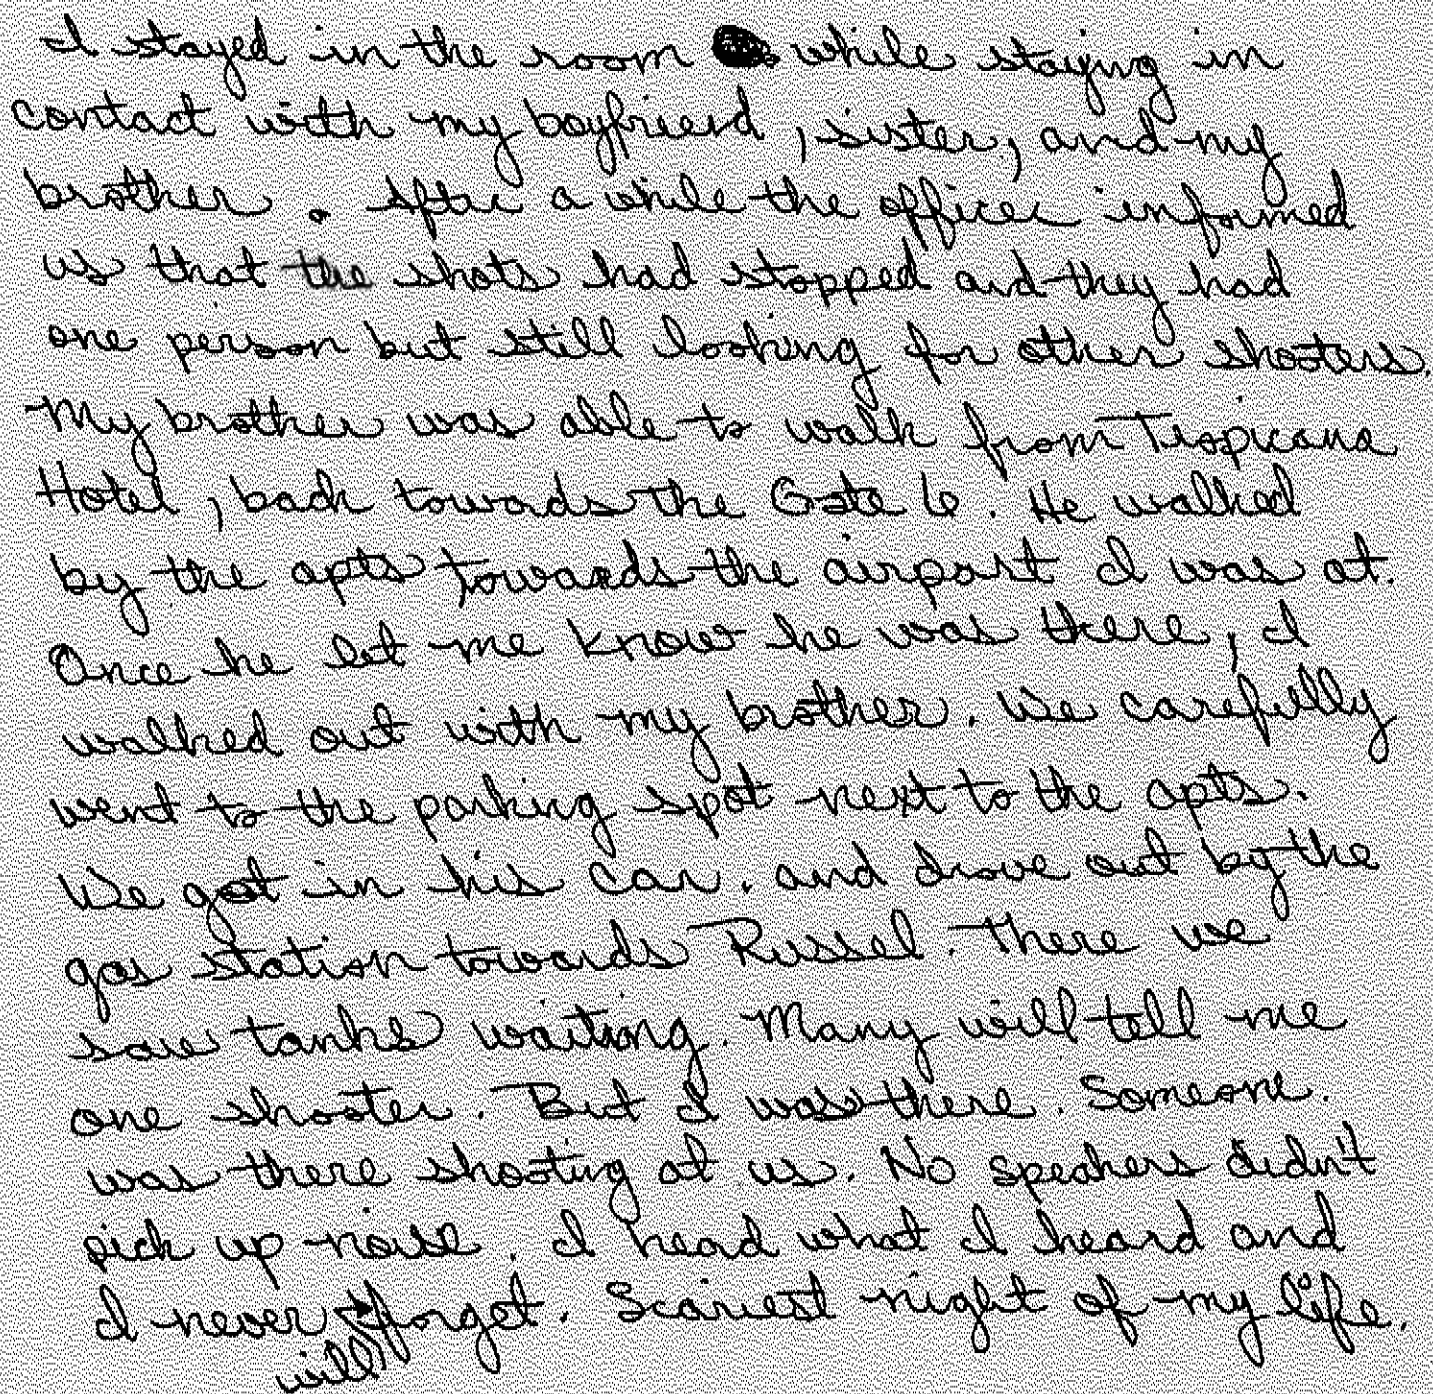 I stayed in the room while staying in
contact with my boyfriend, sister, and my
brother. After a while the officer informed
us that the shots had stopped and they had
one person but still looking for other shooters.
My brother was able to walk from Tropicana
Hotel, back towards the Gate 6. He walked
by the apts towards the airport I was at.
Once he let me know he was there, I
walked out with my brother. We carefully
went to the parking spot next to the apts.
We got in his car. and drove out by the
gas station towards Russel. There we
saw tanks waiting. Many will tell me
one shooter. But I was there. Someone.
was there shooting at us. No speakers didn't
pick up noise. I heard what I heard and
I never will forget. Scariest night of my life.